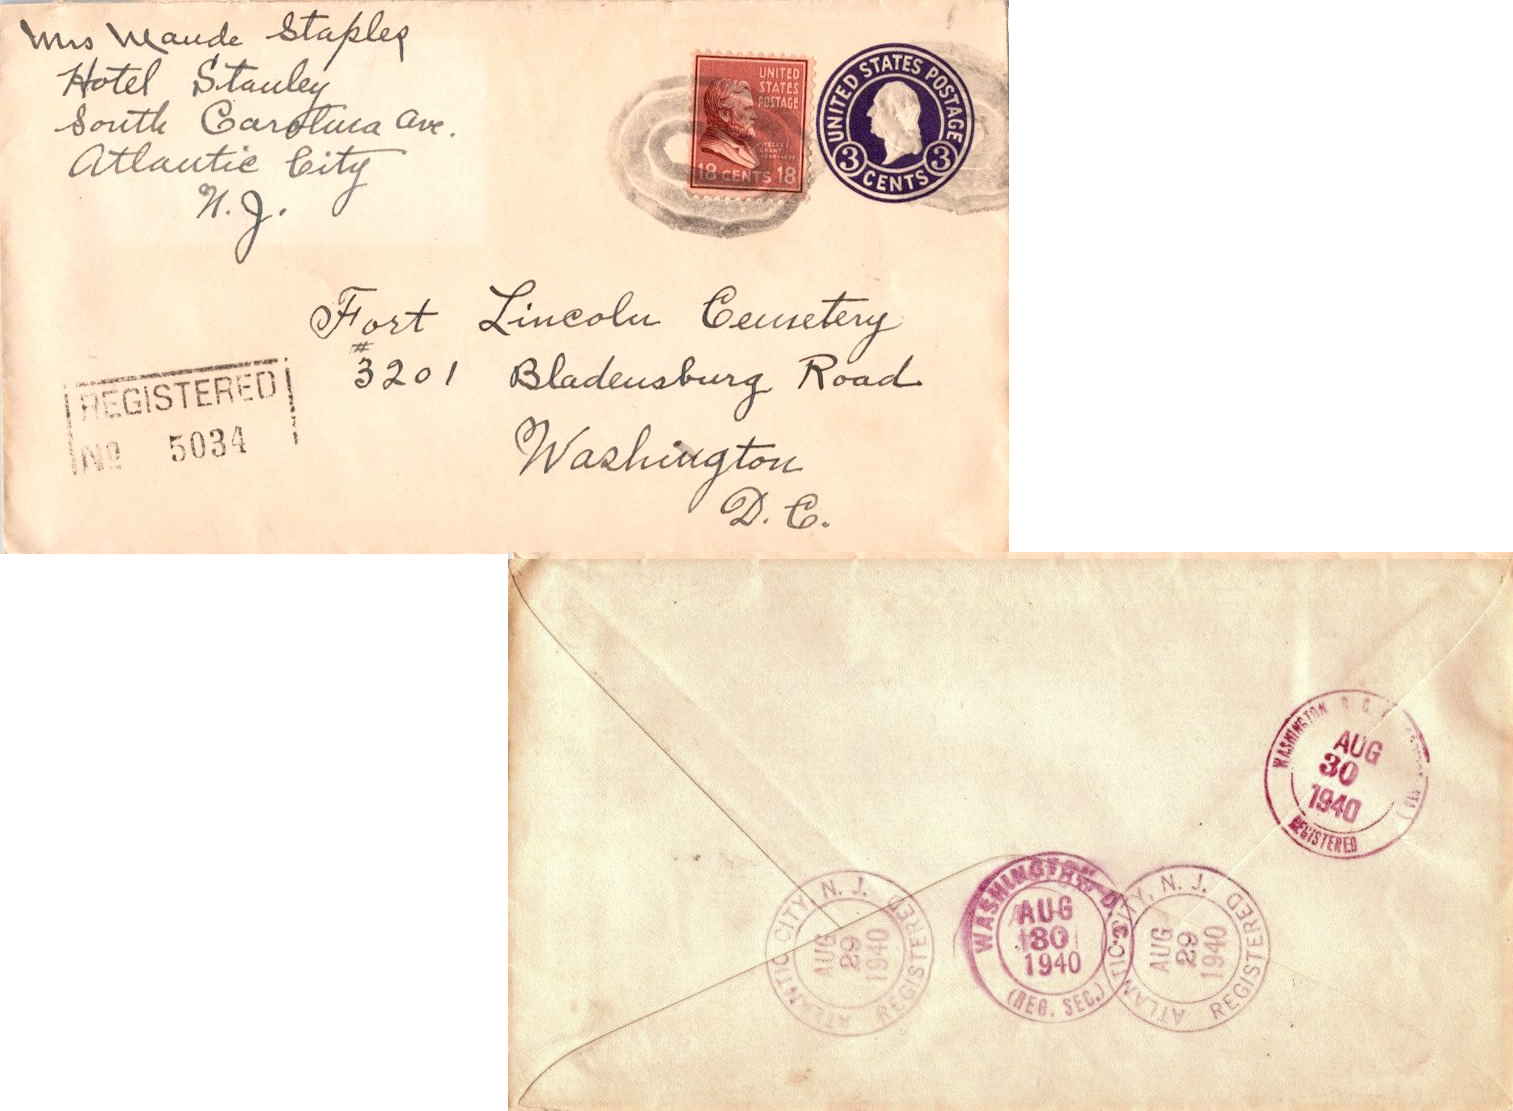 Mrs Maude Staples
Hotel Stanley
South Carolina Ave.
Atlantic City
N.J.
UNITED
STATES
POSTAGE
18 CENTS 18
UNITED STATES POSTAGE
3 3
CENTS
Fort Lincoln Cemetery
#3201 Bladensburg Road
Washington
D.C.
REGISTERED
No 5034
WASHINGTON D. C.
AUG
30
1940
REGISTERED
ATLANTIC CITY, N. J.
AUG
29
1940
REGISTERED
WASHINGTON, D.C.
AUG
30
1940
(REG. SEC.)
ATLANTIC CITY, N. J.
AUG
29
1940
REGISTERED